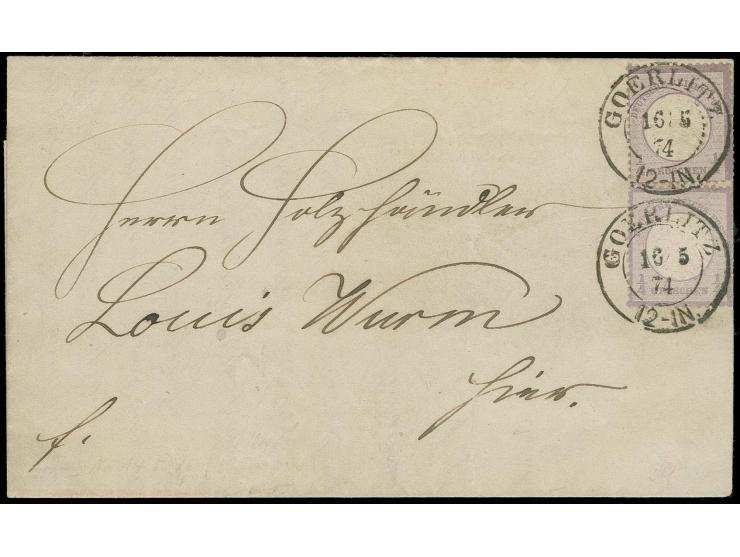 GOERLITZ
16/5
74
12-IN.
GOERLITZ
16/5
74
12-IN.
1/4 GROSCHEN 1/4
Herrn Holzhändler
Louis Wurm
hier.
f.